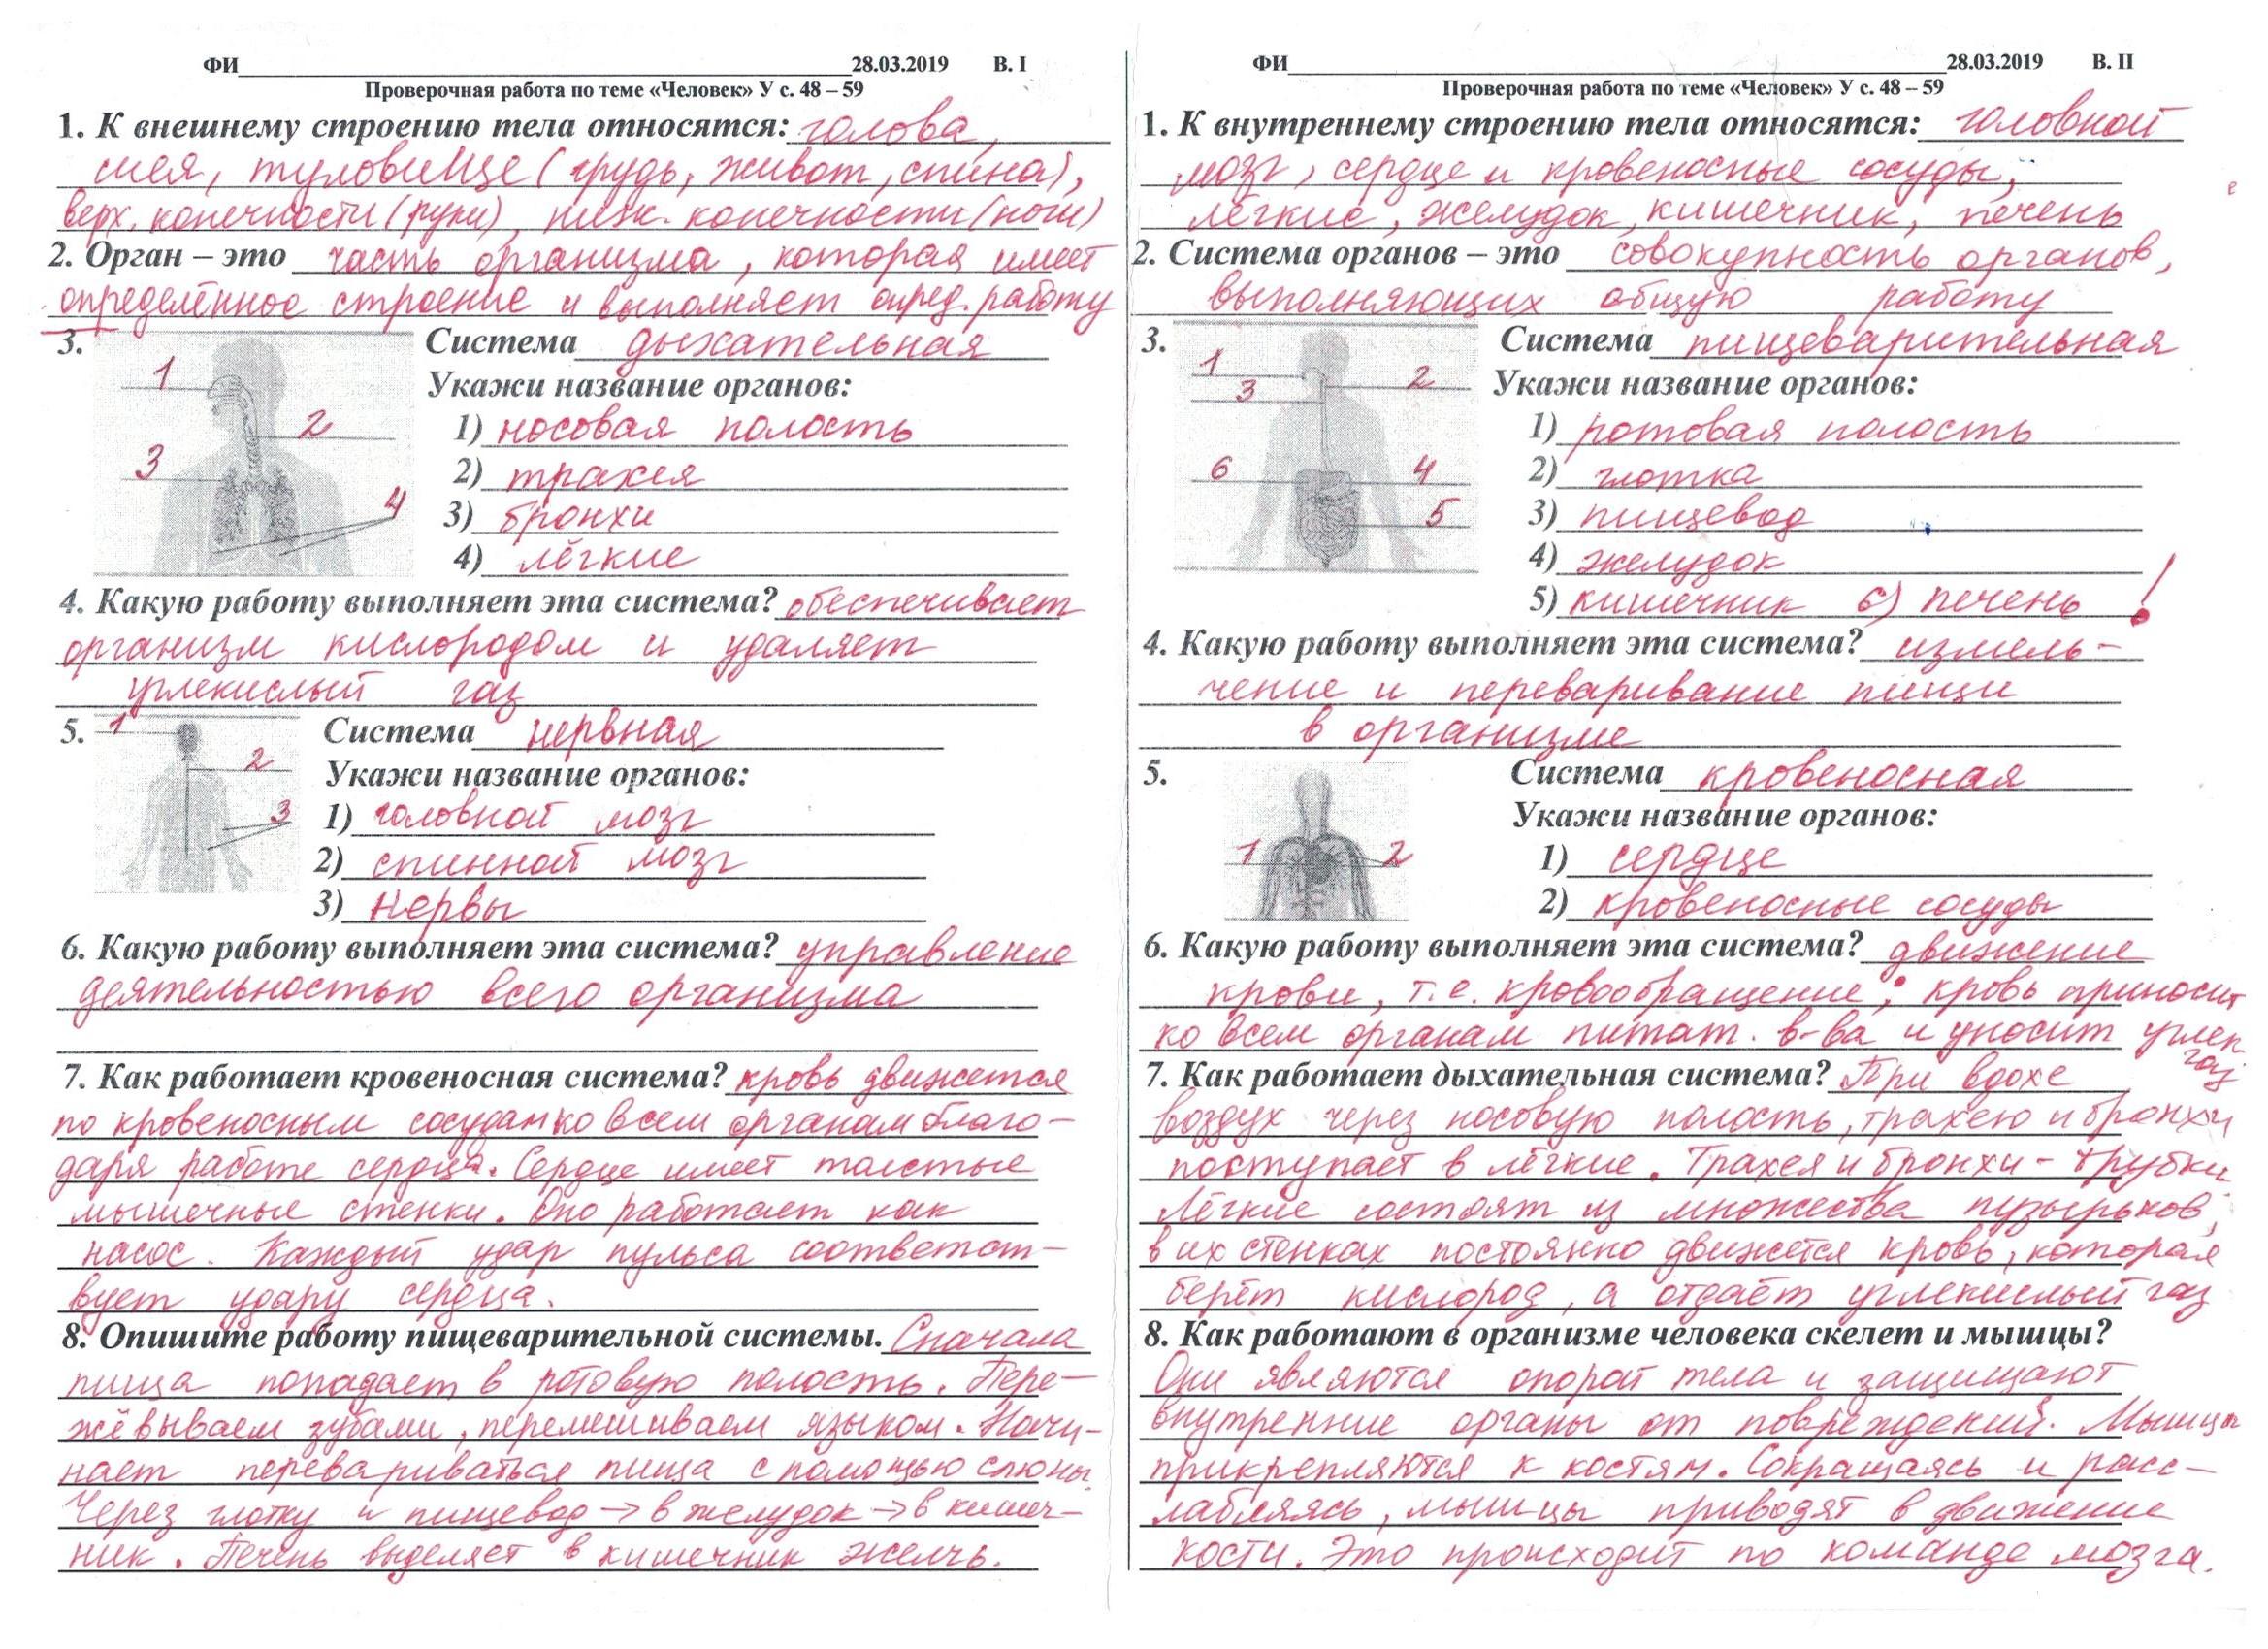 ФИ 28.03.2019 В. I
Проверочная работа по теме «Человек» У с. 48 – 59
1. К внешнему строению тела относятся: голова,
шея, туловище (грудь, живот, спина),
верх. конечности (руки), ниж. конечности (ноги)
2. Орган – это часть организма, которая имеет
определённое строение и выполняет опред. работу
3. Система дыхательная
Укажи название органов:
1
2
3
4
1) носовая полость
2) трахея
3) бронхи
4) лёгкие
4. Какую работу выполняет эта система? обеспечивает
организм кислородом и удаляет
углекислый газ
5. Система нервная
Укажи название органов:
1
2
3
1) головной мозг
2) спинной мозг
3) нервы
6. Какую работу выполняет эта система? управление
деятельностью всего организма
7. Как работает кровеносная система? кровь движется
по кровеносным сосудам ко всем органам благо-
даря работе сердца. Сердце имеет толстые
мышечные стенки. Оно работает как
насос. Каждый удар пульса соответст-
вует удару сердца.
8. Опишите работу пищеварительной системы. Сначала
пища попадает в ротовую полость. Пере-
жёвываем зубами, перемешиваем языком. Начи-
нает перевариваться пища с помощью слюны.
Через глотку и пищевод → в желудок → в кишеч-
ник. Печень выделяет в кишечник желчь.
ФИ 28.03.2019 В. II
Проверочная работа по теме «Человек» У с. 48 – 59
1. К внутреннему строению тела относятся: головной
мозг, сердце и кровеносные сосуды,
лёгкие, желудок, кишечник, печень
2. Система органов – это совокупность органов,
выполняющих общую работу
3. Система пищеварительная
Укажи название органов:
1
2
3
6
4
5
1) ротовая полость
2) глотка
3) пищевод
4) желудок
5) кишечник 6) печень !
4. Какую работу выполняет эта система? измель-
чение и переваривание пищи
в организме
5. Система кровеносная
Укажи название органов:
1
2
1) сердце
2) кровеносные сосуды
6. Какую работу выполняет эта система? движение
крови, т.е. кровообращение; кровь приносит
ко всем органам питат. в-ва и уносит углек.
газ
7. Как работает дыхательная система? При вдохе
воздух через носовую полость, трахею и бронхи
поступает в лёгкие. Трахея и бронхи – трубки.
Лёгкие состоят из множества пузырьков,
в их стенках постоянно движется кровь, которая
берёт кислород, а отдаёт углекислый газ
8. Как работают в организме человека скелет и мышцы?
Они являются опорой тела и защищают
внутренние органы от повреждений. Мышцы
прикрепляются к костям. Сокращаясь и расс-
лабляясь, мышцы приводят в движение
кости. Это происходит по команде мозга.